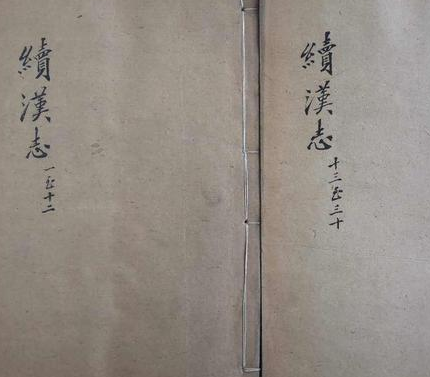 續漢志
一至十二
續漢志
十三至三十